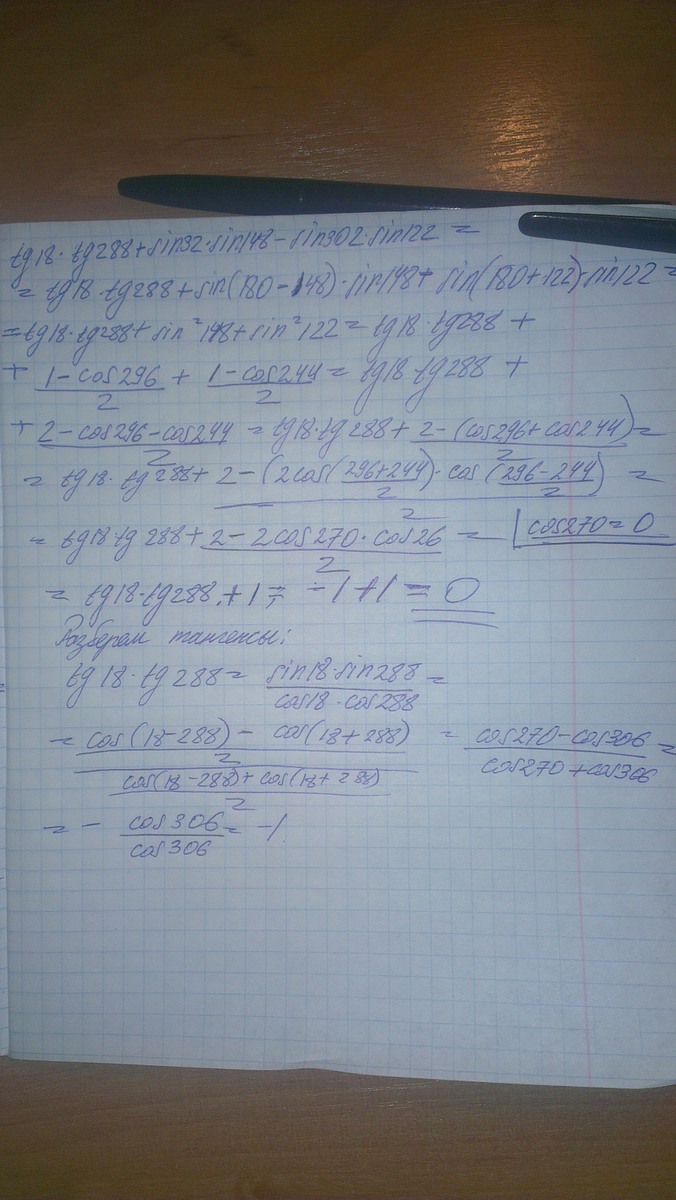 tg18·tg288+sin32·sin148-sin302·sin122=
=tg18·tg288+sin(180-148)·sin148+sin(180+122)·sin122=
=tg18·tg288+sin²148+sin²122=tg18·tg288+
+ (1-cos296)/2 + (1-cos244)/2 = tg18·tg288 +
+ (2-cos296-cos244)/2 = tg18·tg288+ (2-(cos296+cos244))/2 =
= tg18·tg288+ (2-(2cos((296+244)/2)·cos((296-244)/2)))/2 =
= tg18·tg288+ (2-2cos270·cos26)/2 = | cos270=0
= tg18·tg288+1 = -1+1=0
Разберем тангенсы:
tg18·tg288= (sin18·sin288)/(cos18·cos288) =
= ((cos(18-288)-cos(18+288))/2)/((cos(18-288)+cos(18+288))/2) = (cos270-cos306)/(cos270+cos306) =
= - cos306/cos306 = -1